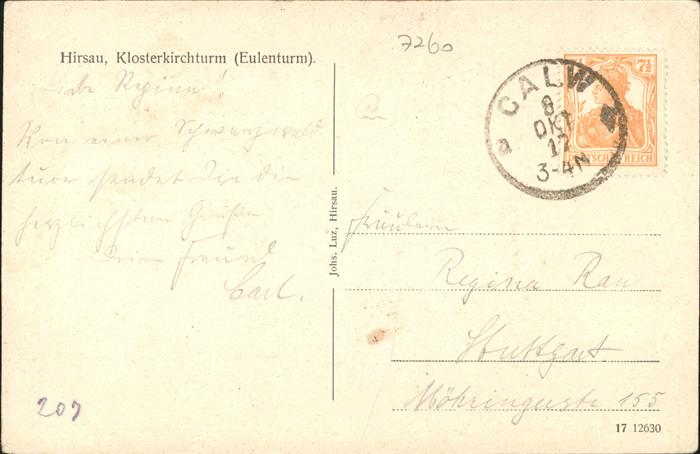 Hirsau, Klosterkirchturm (Eulenturm).
7260
Liebe Regina!
Von einer Schwarzwald
tour sendet Dir die
herzlichsten Grüße
Dein Freund
Carl.
207
Johs. Luz, Hirsau.
CALW
8
OKT
17
3-4N
a
7½
DEUTSCHES REICH
Fräulein
Regina Rau
Stuttgart
Möhringerstr 155
17 12630